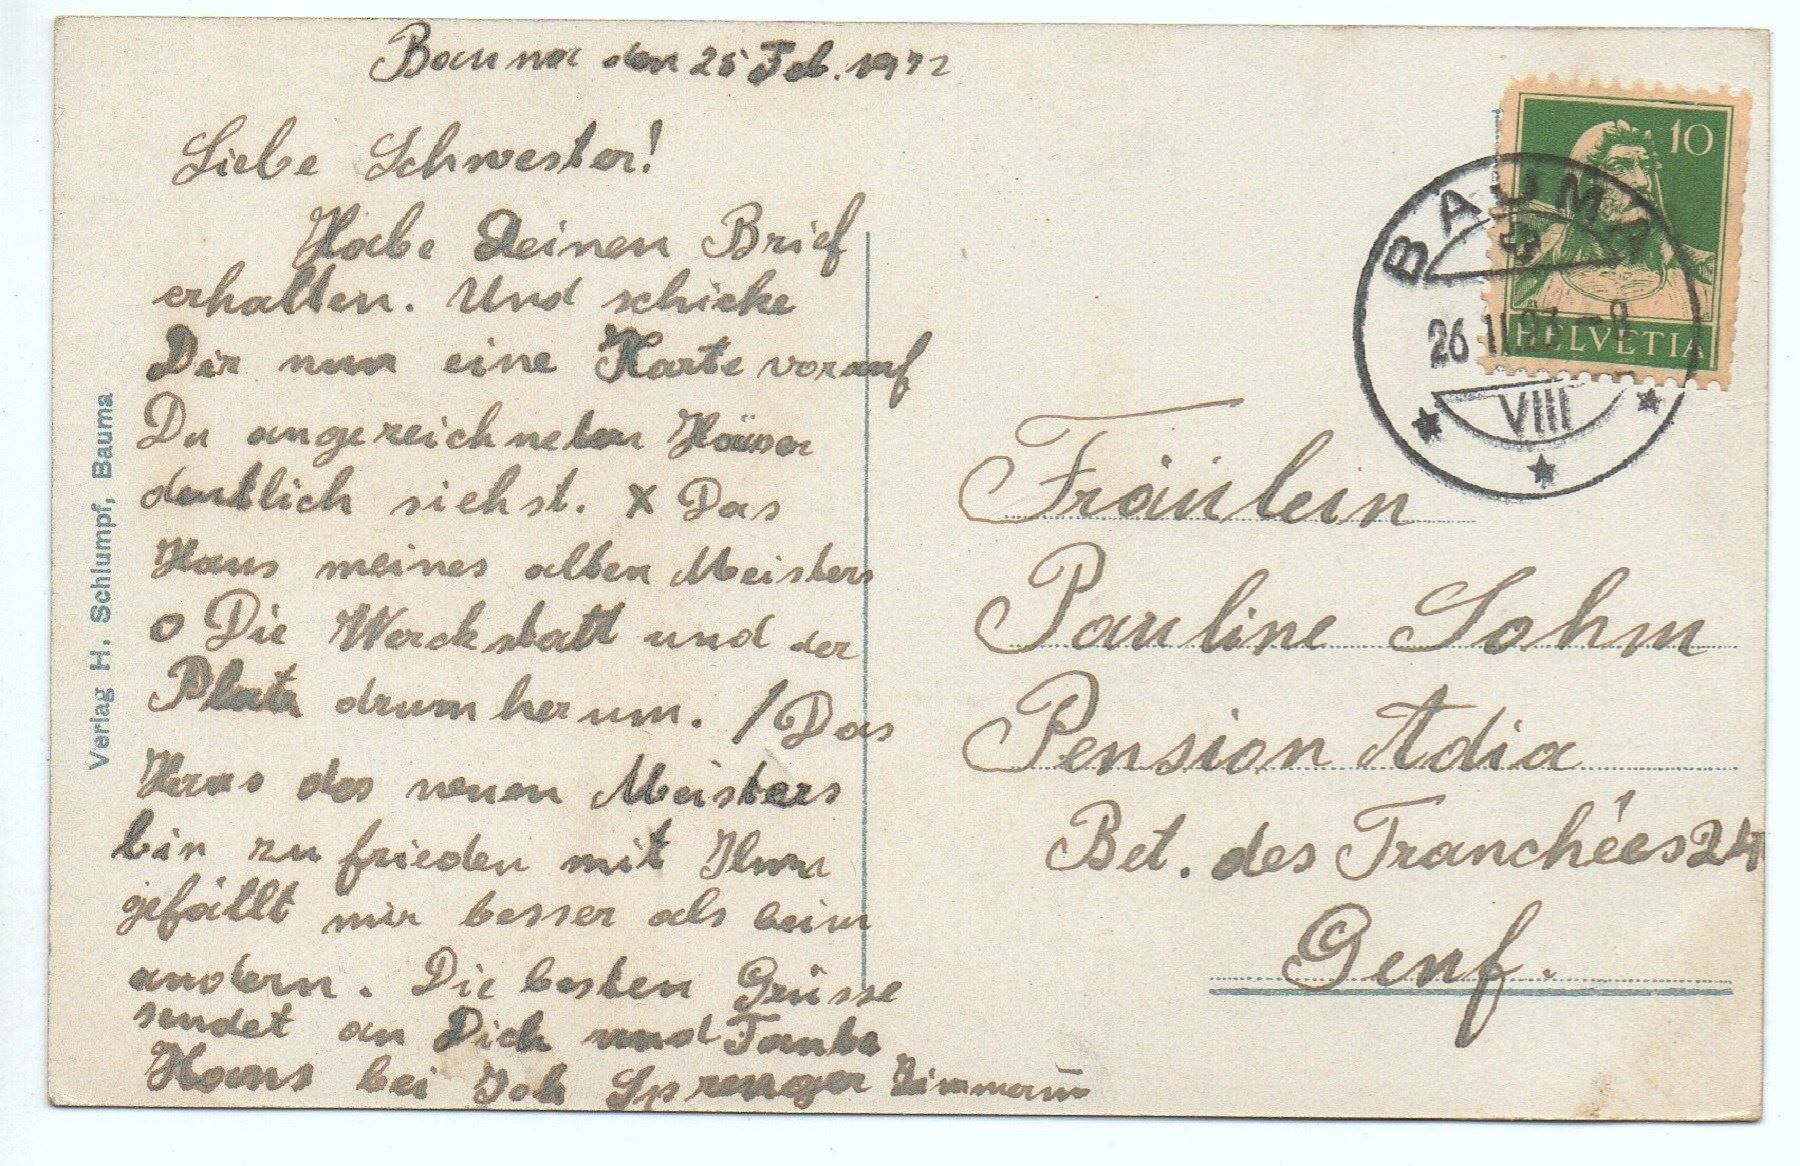 Bauma den 25 Feb. 19
Liebe Schwester!
Habe Deinen Brief
erhalten. Und schicke
Dir nun eine Karte vorauf
Du angereichneten Häuser
deutlich siehst. X Das
Haus meines alten Meisters
O Die Werckstatt und der
Platz drum herum. / Das
Haus des neuen Meisters
bin zu frieden mit
gefällt mir besser als beim
andern. Die besten Grüsse
sendet an Dich und Tante
Hans bei Joh Sprenger Zimmerm̅
Verlag H. Schlumpf, Bauma
10
HELVETIA
BAUMA
26 II 27 -8
VIII
Fräulein
Pauline Sohm
Pension Adia
Bet. des Tranchées 24
Genf.